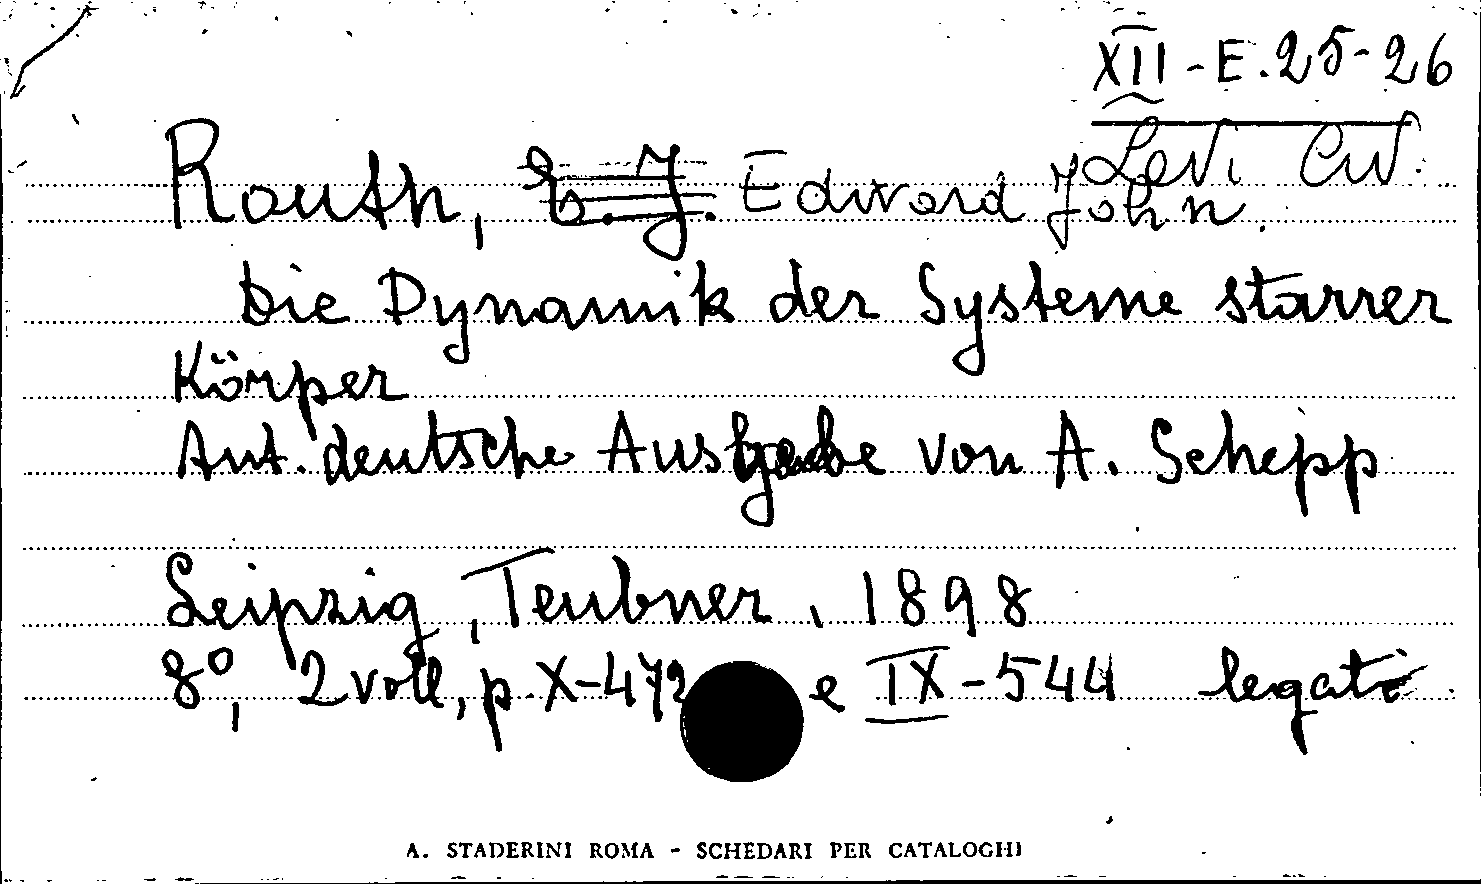 XII - E. 25 - 26
Levi Civ.
Routh, E. J. Edward John.
Die Dynamik der Systeme starrer
Körper
Aut. deutsche Ausgabe von A. Schepp
Leipzig, Teubner, 1898
8°, 2 voll, p. X-472 e IX-544 legati
A. STADERINI ROMA - SCHEDARI PER CATALOGHI